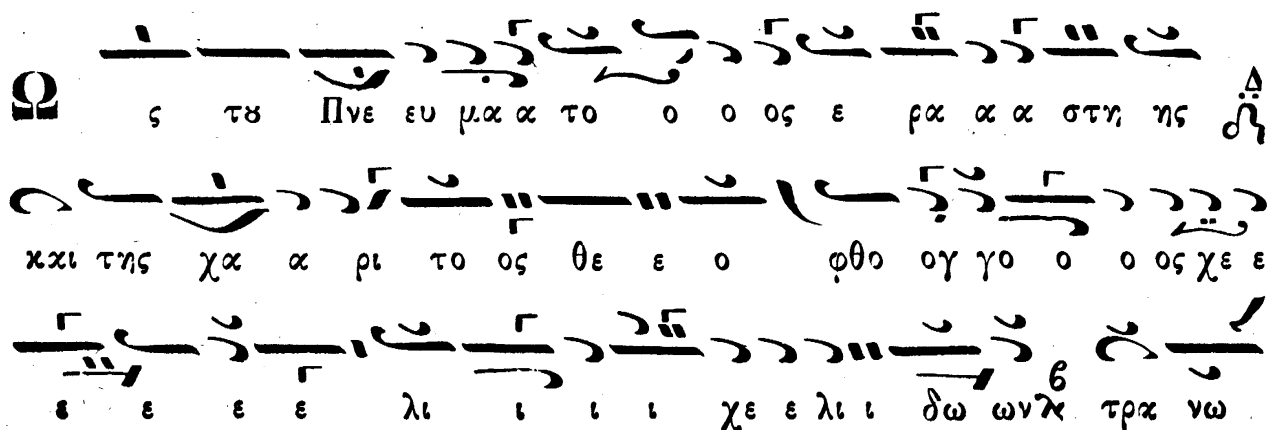 Ω ς τȣ Πνε ευ μα α το ο ο ος ε ρα α α στη ης Δ
και της χα α ρι το ος θε ε ο φθο ογ γο ο ο ος χε ε
ε ε ε ε λι ι ι ι χε ε λι ι δω ων β τρα νω